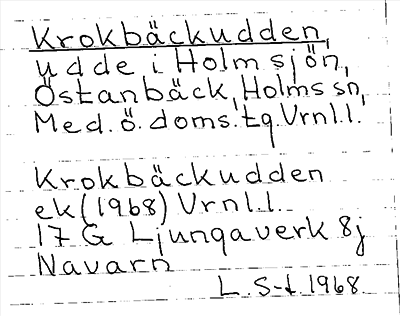 Krokbäckudden,
udde i Holmsjön,
Östanbäck, Holms sn,
Med. ö. doms. tg. Vrnl.l.
Krokbäckudden
ek (1968) Vrnl.l.
17 G Ljungaverk 8j
Navarn
L. S-t. 1968.